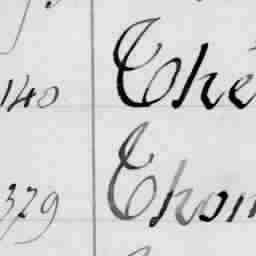 140 Thé
379 Thom